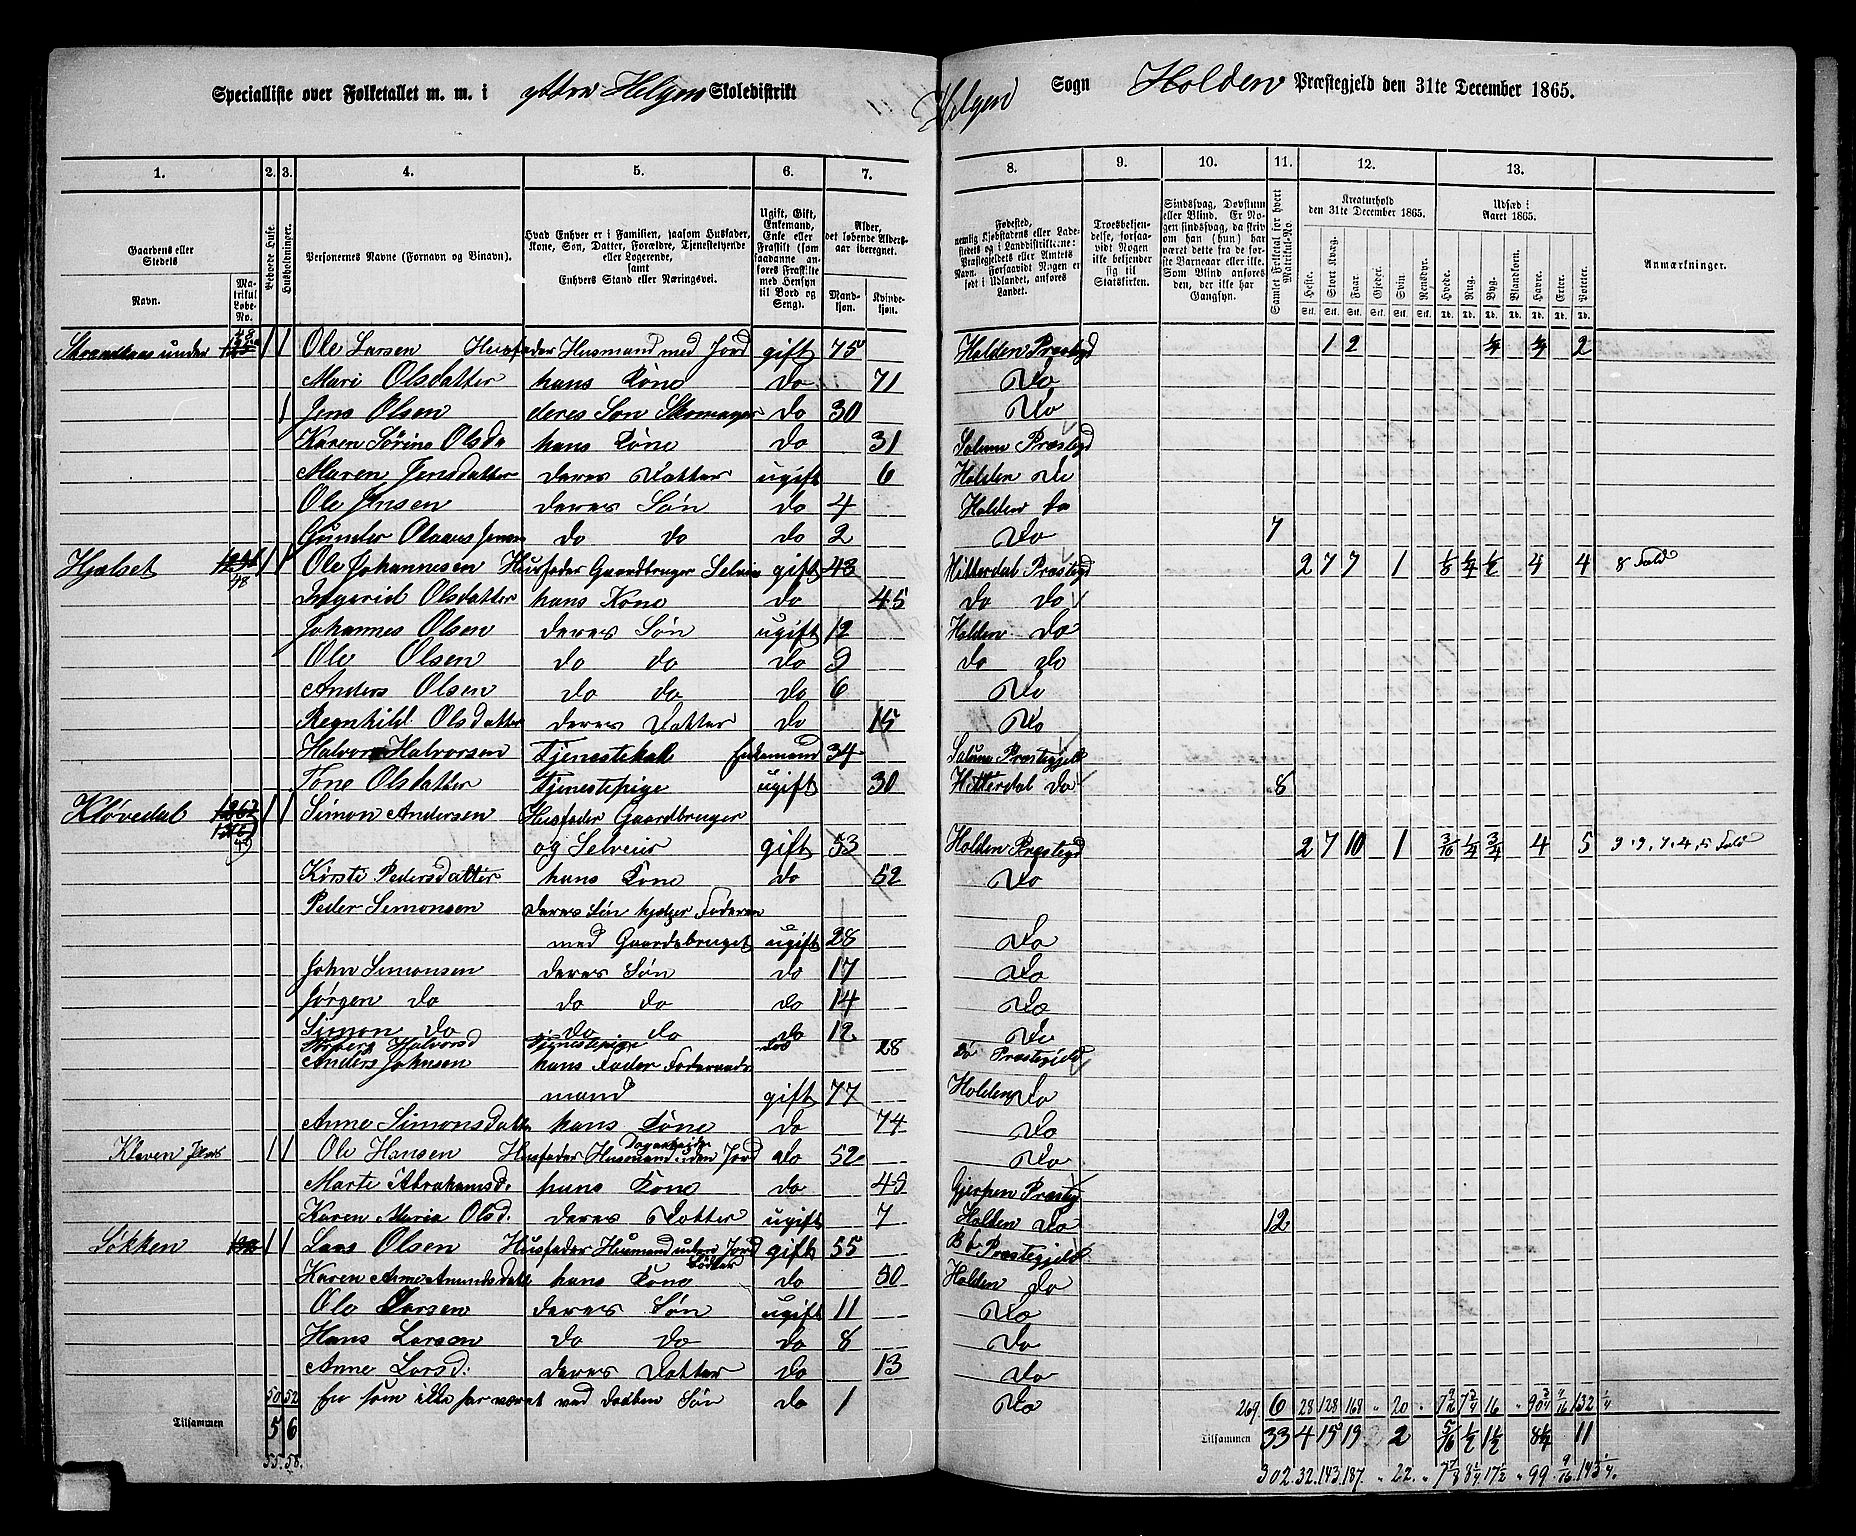 Specialliste over Folketallet m. m. i yttre Helgen Skoledistrikt Helgen Sogn Holden Præstegjeld den 31te December 1865.
1. 2. 3. 4. 5. 6. 7. 8. 9. 10. 11. 12. 13.
Gaardens eller Stedets
Navn.
Matrikul Løbe-No.
Beboede Huse.
Husholdninger.
Personernes Navne (Fornavn og Binavn).
Hvad Enhver er i Familien, saasom Husfader, Kone, Søn, Datter, Forældre, Tjenestetyende eller Logerende, samt Enhvers Stand eller Næringsvei.
Ugift, Gift, Enkemand, Enke eller Fraskilt (som saadanne anføres Fraskilte med Hensyn til Bord og Seng).
Alder, det løbende Aldersaar iberegnet.
Mandkjøn. Kvindekjøn.
Fødested, nemlig Kjøbstadens eller Ladestedets og i Landdistrikterne: Præstegjeldets eller Amtets Navn. Forsaavidt Nogen er født i Udlandet, anføres Landet.
Troesbekjendelse, forsaavidt Nogen ikke bekjender sig til Statskirken.
Sindssvag, Døvstum eller Blind. Er Nogen sindssvag, da skrives om han (hun) har været dette fra de første Barneaar eller ikke. Som Blind ansføres den, der ikke har Gangsyn.
Samlet Folketal for hvert Matrikul-No.
Kreaturhold den 31te December 1865.
Heste. Stort Kvæg. Faar. Gjeder. Svin. Rensdyr.
Udsæd i Aaret 1865.
Hvede. Rug. Byg. Blandkorn. Havre. Erter. Poteter.
Anmærkninger.
under 1 1 Ole Larsen Husfader Husmand med Jord gift 75 Holden Præstegd 1 2 1/4 2
Mari Olsdatter hans Kone do 71 Do
1 Jens Olsen deres Søn Skomager do 30 Do
Karen Sørine Olsda hans Kone do 31 Solum Præstegd
Maren Jensdatter deres Datter ugift 6 Holden Do
Ole Jensen deres Søn do 4 Holden do
Gunder Olaus Jensen do do do 2 Do 7
Hjelset 48 1 1 Ole Johannesen Husfader Gaardbruger Selveier gift 43 Hitterdal Præstegd 2 7 7 1 1/8 1/4 1/2 4 4 8 Fold
Ingerid Olsdatter hans Kone do 45 do do
Johannes Olsen deres Søn ugift 12 Holden Do
Ole Olsen do do do 9 do do
Anders Olsen do do do 6 Do
Regnhild Olsdatter deres Datter do 15 Do
Halvor Halvorsen Tjenestekal Enkemand 34 Solum Præstegjeld
Tone Olsdatter Tjenestepige ugift 30 Hitterdal Do 8
Kløvedal 1 1 Simon Andersen Husfader Gaardbruger
og Selveier gift 53 Holden Præstegd 2 7 10 1 3/16 1/4 3/4 4 5 9.9.7.4.5 Fold
Kirsti Pedersdatter hans Kone do 52 Do
Peder Simonsen deres Søn hjelper Faderen
med Gaardsbruget ugift 28 Do
John Simonsen deres Søn do 17 Do
Jørgen do do do do 14 Do
Simon do do do do 12 Do
Halvorsd Tjenestepige do 28 Bø Præstegjeld
Anders Johnsen hans Fader Føderaads
mand gift 77 Holden Do
Anne Simonsdatter hans Kone do 74 Do
Kleven 1 1 Ole Hansen Husfader Husmand uden Jord Dagarbeider do 52 Do
Marte Abrahamsd. hans Kone do 49 Gjerpen Præsteg
Karen Maria Olsd. deres Datter ugift 7 Holden Do 12
Løkken 1 1 Lars Olsen Husfader Husmand uden Jord gift 55 Bø Præstegjeld
Karen Anne Amundsdatt hans Kone do 50 Holden Do
Ole Larsen deres Søn ugift 11 Do
Hans Larsen do do do 8 Do
Anne Larsd: deres Datter do 13 Do
50 52 En som ikke har været ved Daaben Søn do 1 Do 269. 6 28 128 168 " 20 " 16 " 132 1/4
Tilsammen 5 6 Tilsammen 33 4 15 19 2 5/16 1/2 1 1/2 8 1/4 11
55. 58. 302. 32. 143. 187. " 22. " 7 7/8 8 1/4 17 1/2 " 99 9/16 143 1/4.